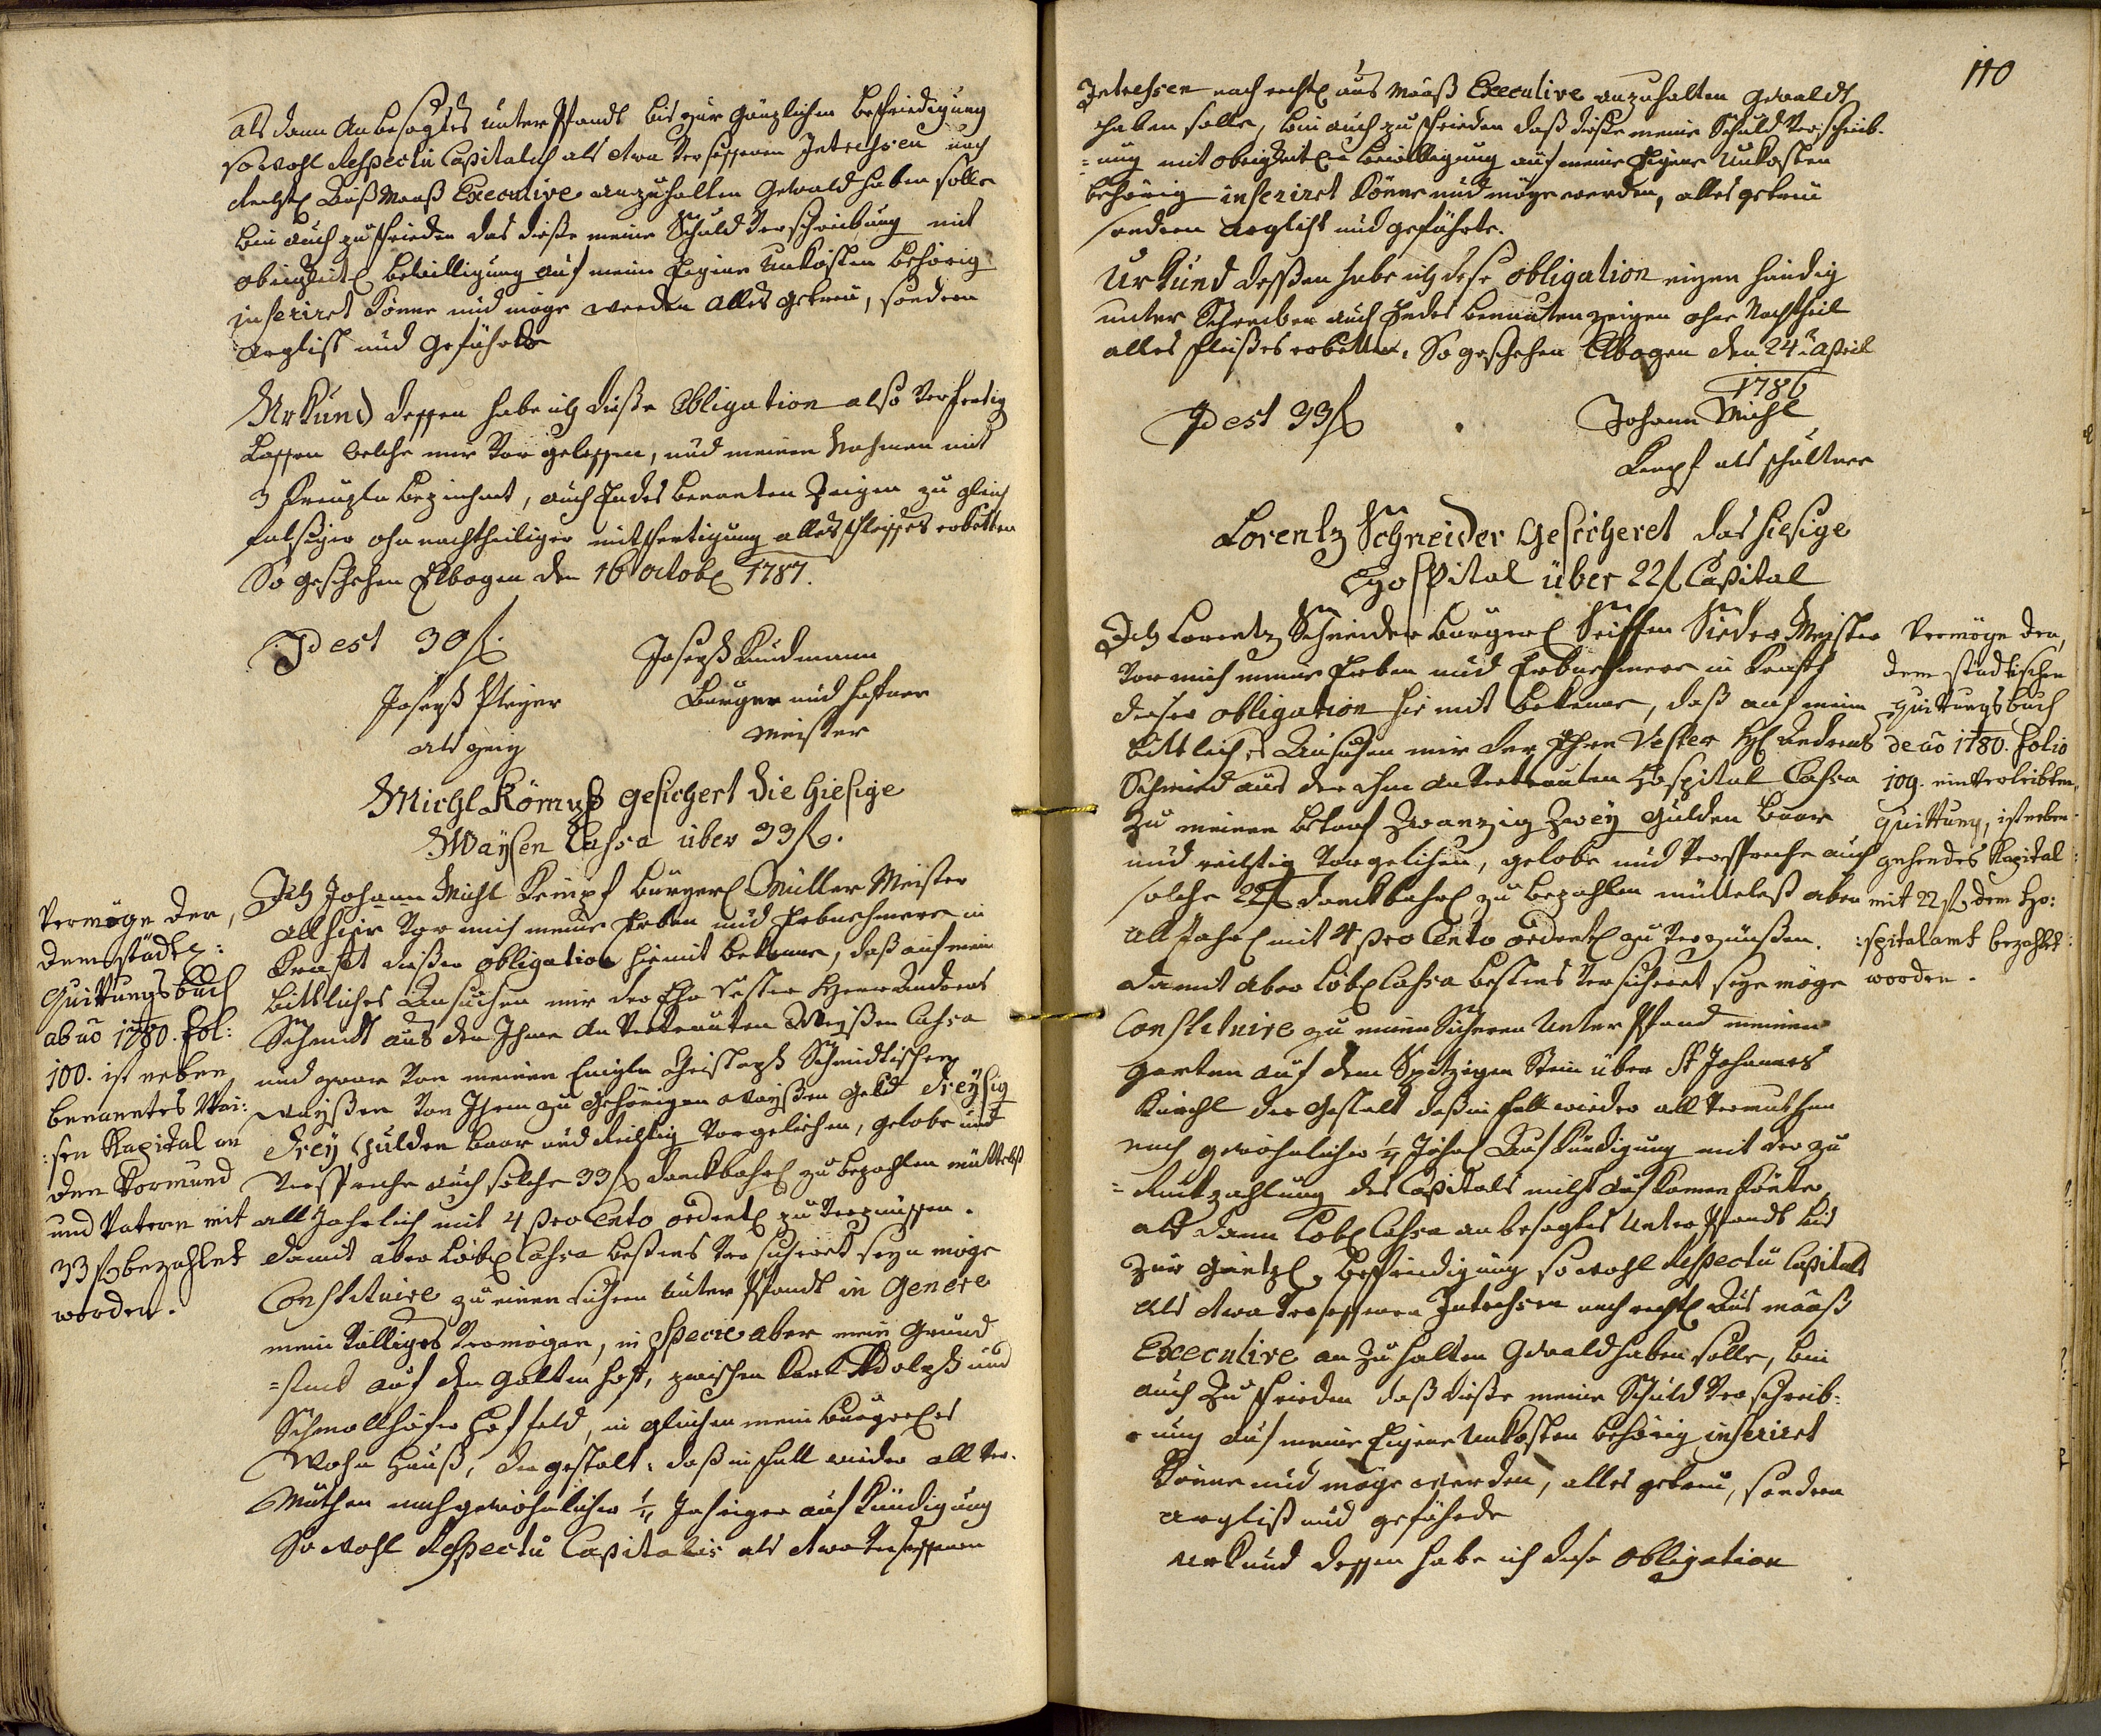 als dann anbesagtes unter Pfandt bis zur gänzlichen befriedigung
sowohl Respectu Capitalis als etwa versessenen Intressen nach
rechtl Auß Maaß Executive anzuhalten Gewald haben solle
bin auch zu frieden das diese meine Schuld Verschreibung mit
obrigkeitl bewilligung auf meine Eigene Unkosten behörig
inseriret könne und möge werden alles getreu, sondern
arglist und Gefährde
Urkund dessen habe ich diese Obligation also Verfertig
lassen welche mir vor gelessen, und meinen Nahmen mit
3 Kreuzln bezeichnet, auch Endes benanten Zeigen zu gleich
ohn nachtheiliger mitfertigung alles fleisses erbetten
So geschehen Elbogen den 16 octobl 1787.
Id est 30 fl.
Joseph
Burger und Hafner
Meister
Joseph Pleyer
als zeig
Michl gesichert die hiesige
Waysen Cassa über 33 fl.
Ich Johann Michl Kempf burgerl Müller Meister
allhier vor mich meine Erben und Erbnehmere in
Kraft dieser obligation hiemit bekenne, daß auf mein
bittliches Ansuchen mir der Ehr Vester Herr Andreas
Schmidt aus der Ihme an Vertrauten Weißen Cassa
und zwar von meinen Christoph Schmidtischen
Waißen von Ihnen zu gehörigen Waißen Geld dreysig
drey Gulden baar und richtig vorgeliehen, gelobe und
Verspreche auch solche 33 fl danckbahrl zu bezahlen mittelst
all Jahrlich mit 4 pro Cento ordentl zu verzinssen.
damit aber löbl Cassa bestens versicheret seyn möge
Constituire zu einen sichern unter Pfandt in Genere
mein völliges Vermögen, in specie aber mein Grund
=stück auf den zwischen Karl Adolph und
Schmollhöfer Hof feld, in gleichen mein Burgerles
Wohn Hauß, der gestalt, daß in fall wieder all Ver-
Muthen nach gewöhnlicher ¼ Jahriger auf Kündigung
So wohl Respectu Capitalis als etwa Versessenen
Vermöge der,
dem städtl:
Quittungsbuch
ab aō 1780. fol:
100. ist neben
benanntes Wai:
:sen Kapital an
den Vormund
und Vatern mit
33 fl bezahlet
worden.
110
Intressen nach rechtl aus Maaß Executive anzuhalten Gewaldt
haben solle, bin auch zu frieden daß diese meine Schuld Verschreib-
=ung mit obrigkeitlr bewilligung auf meine Eigene Unkosten
behörig inseriret könne und möge werden, alles getreu
sondern arglist und gefährte.
Urkund dessen habe ich dese obligation eigen händig
unter Schrieben auch Endes benanten zeigen ohne Nachtheil
alles fleißes erbetten. So geschehen Elbogen den 24ten April
1786
Id est 33 fl
Johann Michl
Kempf als schultner
Lorentz Schneider Gesicheret das hiesige
Hospital über 22 fl Capital
Ich Lorentz Schneider burgerl Seiffen Sieder Meister
vor mich meine Erben und Erbnehmere in Kraft
dieser obligation hiemit bekenne, daß auf mein
bittliches Ansuchen mir der Ehren Vester H Andreas
Schmied aus der ihm an Vertrauten Hospital Cassa
zu meinen bedarf Zwanzig Zwey Gulden baar
und richtig vorgeliehen, gelobe und Verspreche auch
solche 22 fl danckbahrl zu bezahlen mittelst aber
all Jahrl mit 4 pro Cento ordentl zu verzünßen.
damit aber löbl Cassa bestens versicheret seye möge
Constituire zu einen Sichern Unter Pfand meinen
garten auf dem Spitzigen Stein über St Johannes
Kirchl der Gestalt daß in fall wieder all Vermuthen
nach gewöhnlicher ¼ Jahrl Aufkündigung mit der zu
=rückzahlung des Capitals nicht aufkomen könte
als dann löbl Cassa an besagtes unter Pfandt bis
zur gäntzl befriedigung sowohl Respectu Capitals
als etwa versessenen Intressen nach rechtl Aus maaß
Executive an zu halten Gewald haben solle, bin
auch zu frieden daß diese meine Schuld Verschreib-
=ung auf meine Eigene Unkosten behörig inseriret
könne und möge werden, alles getreu, sondern
arglist und gefährde
urkund dessen habe ich diese obligation
Vermöge der,
dem städtischen
Quittungsbuch
de aō 1780. folio
109. einverleibten,
Quittung, ist neben-
gehendes Kapital
mit 22 fl dem Ho:
:spitalamt bezahlt
worden.